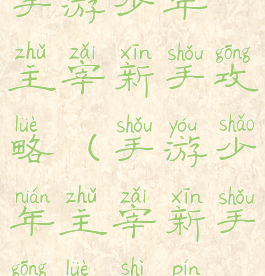 手游少年
zhǔ zǎi xīn shǒu gōng
主宰新手攻
lüè shǒu yóu shǎo
略（手游少
nián zhǔ zǎi xīn shǒu
年主宰新手
gōng lüè shì pín